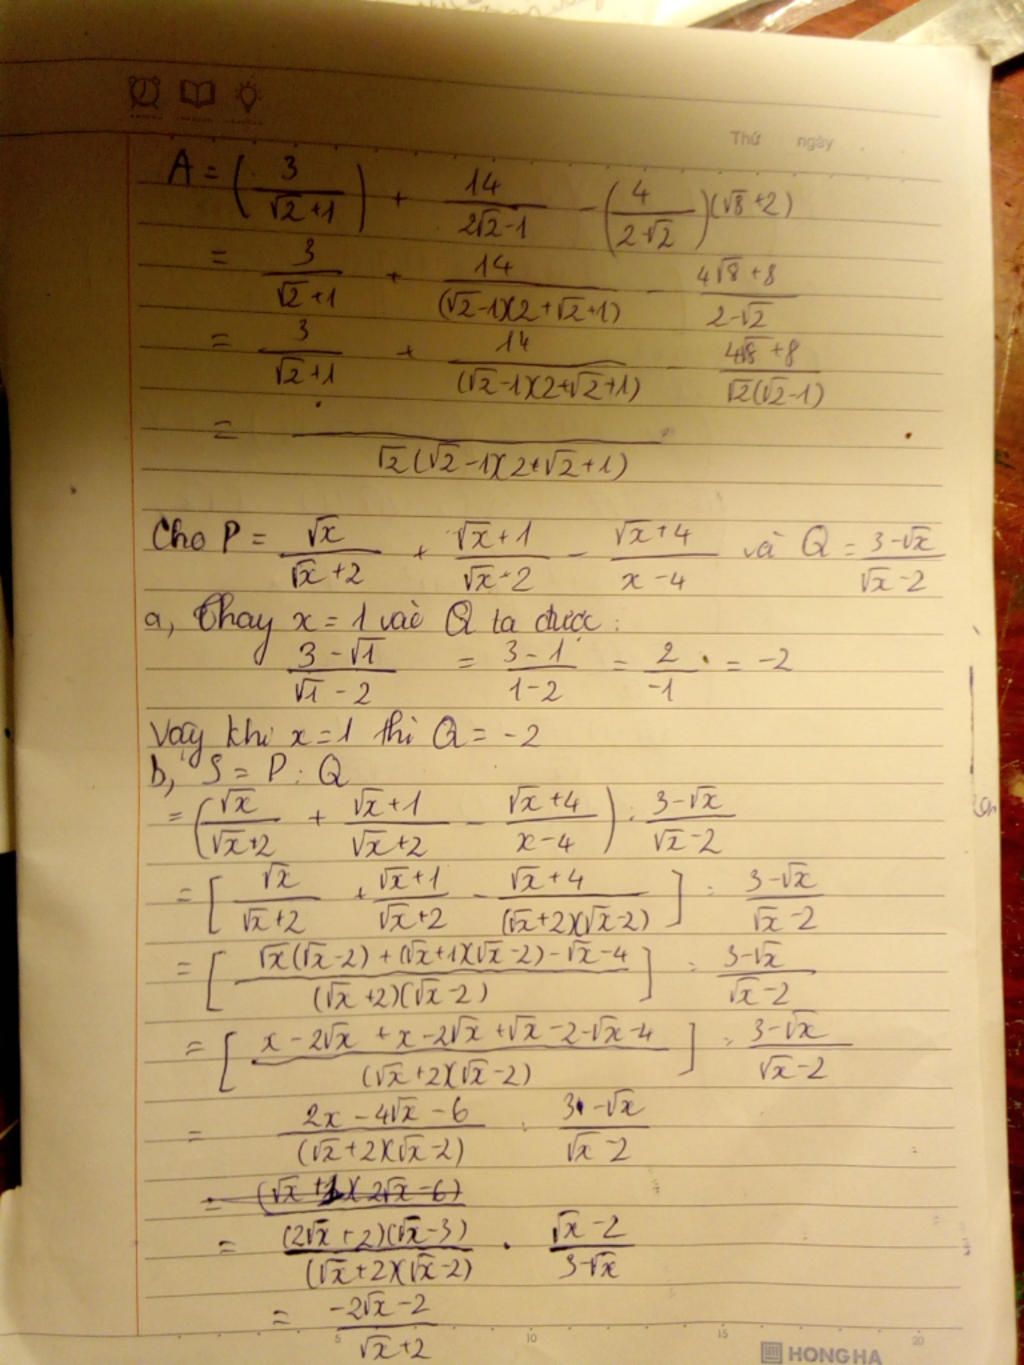 Thứ ngày
A = (3/(√2+1)) + 14/(2√2-1) - (4/(2-√2))(√8+2)
= 3/(√2+1) + 14/((√2-1)(2+√2+1)) - (4√8+8)/(2-√2)
= 3/(√2+1) + 14/((√2-1)(2+√2+1)) - (4√8+8)/(√2(√2-1))
= /(√2(√2-1)(2+√2+1))
Cho P = √x/(√x+2) + (√x+1)/(√x-2) - (√x+4)/(x-4) và Q = (3-√x)/(√x-2)
a, Thay x = 1 vào Q ta được:
(3-√1)/(√1-2) = (3-1)/(1-2) = 2/-1 = -2
Vậy khi x=1 thì Q = -2
b, S = P : Q
= (√x/(√x+2) + (√x+1)/(√x+2) - (√x+4)/(x-4)) : (3-√x)/(√x-2)
= [√x/(√x+2) + (√x+1)/(√x+2) - (√x+4)/((√x+2)(√x-2))] : (3-√x)/(√x-2)
= [(√x(√x-2) + (√x+1)(√x-2) - √x-4)/((√x+2)(√x-2))] : (3-√x)/(√x-2)
= [(x-2√x + x-2√x + √x-2-√x-4)/((√x+2)(√x-2))] : (3-√x)/(√x-2)
= (2x-4√x-6)/((√x+2)(√x-2)) : (3-√x)/(√x-2)
= (√x+1)(2√x-6)
= ((2√x+2)(√x-3))/((√x+2)(√x-2)) . (√x-2)/(3-√x)
= (-2√x-2)/(√x+2)
5 10 15 20
HONG HA